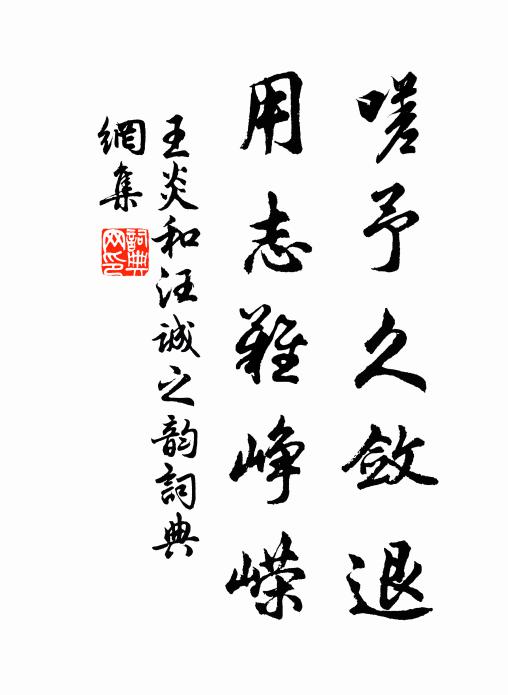 嗟予久斂退
用志難峥嵘
王炎和汪誠之韵詞典
網集
詞典網印